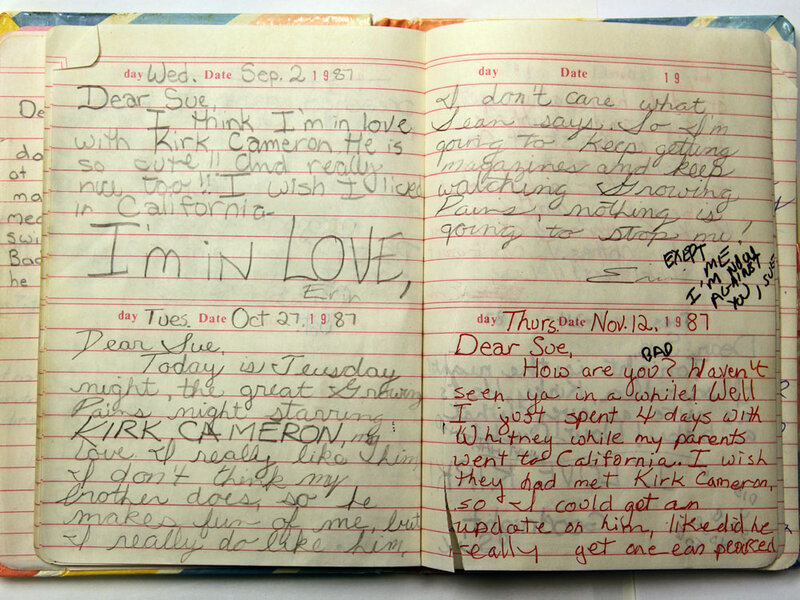 day Wed. Date Sep. 2 1987
Dear Sue,
I think I'm in love
with Kirk Cameron. He is
so cute!! and really
nice too!! I wish I lived
in California-
I'm in LOVE,
Erin
day Tues. Date Oct 27, 1987
Dear Sue,
Today is Teusday
night, the great Growing
Pains night starring
KIRK CAMERON, my
love I really like him,
I don't think my
brother does, so he
makes fun of me, but
I really do like him,
day Date 19
I don't care what
Sean says. So I'm
going to keep getting
magazines and keep
watching Growing
Pains, nothing is
going to stop me!
Erin
EXEPT ME,
I'M
AGAINST
YOU, SUE
day Thurs. Date Nov. 12, 1987
Dear Sue,
BAD
How are you? Haven't
seen ya in a while! Well
I just spent 4 days with
Whitney while my parents
went to California. I wish
they had met Kirk Cameron,
so I could get an
update on him, like did he
really get one ear peirced-
De
do
at
ma
med
swi
Bac
he